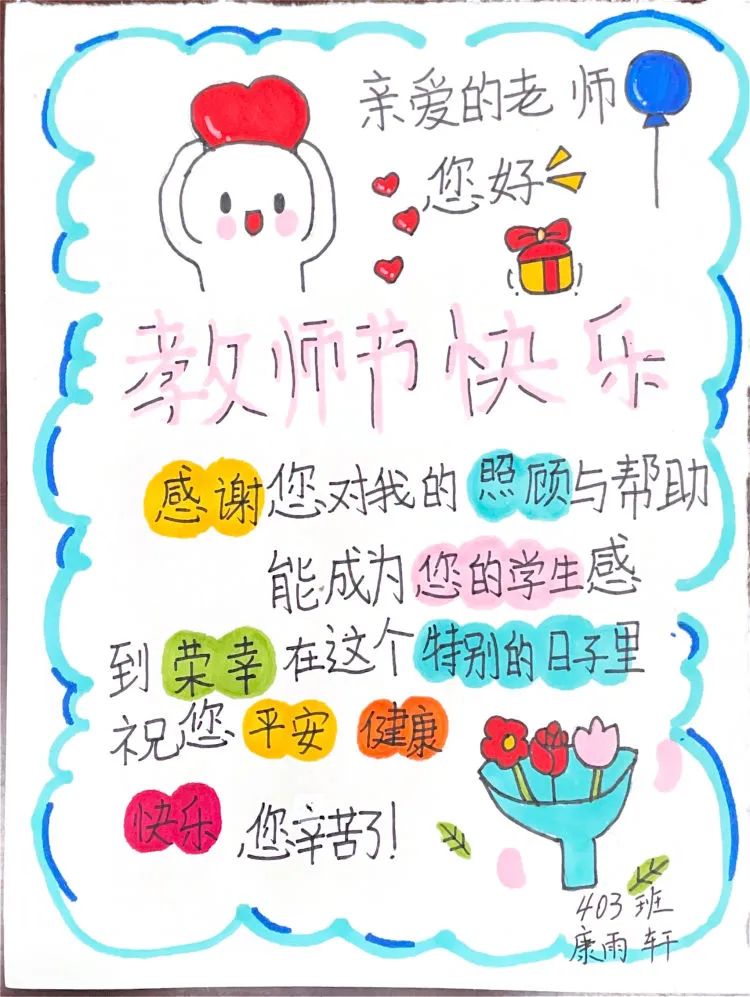 亲爱的老师
您好
教师节快乐
感谢您对我的照顾与帮助
能成为您的学生感
到荣幸在这个特别的日子里
祝您平安 健康
快乐 您辛苦了!
403班
康雨轩